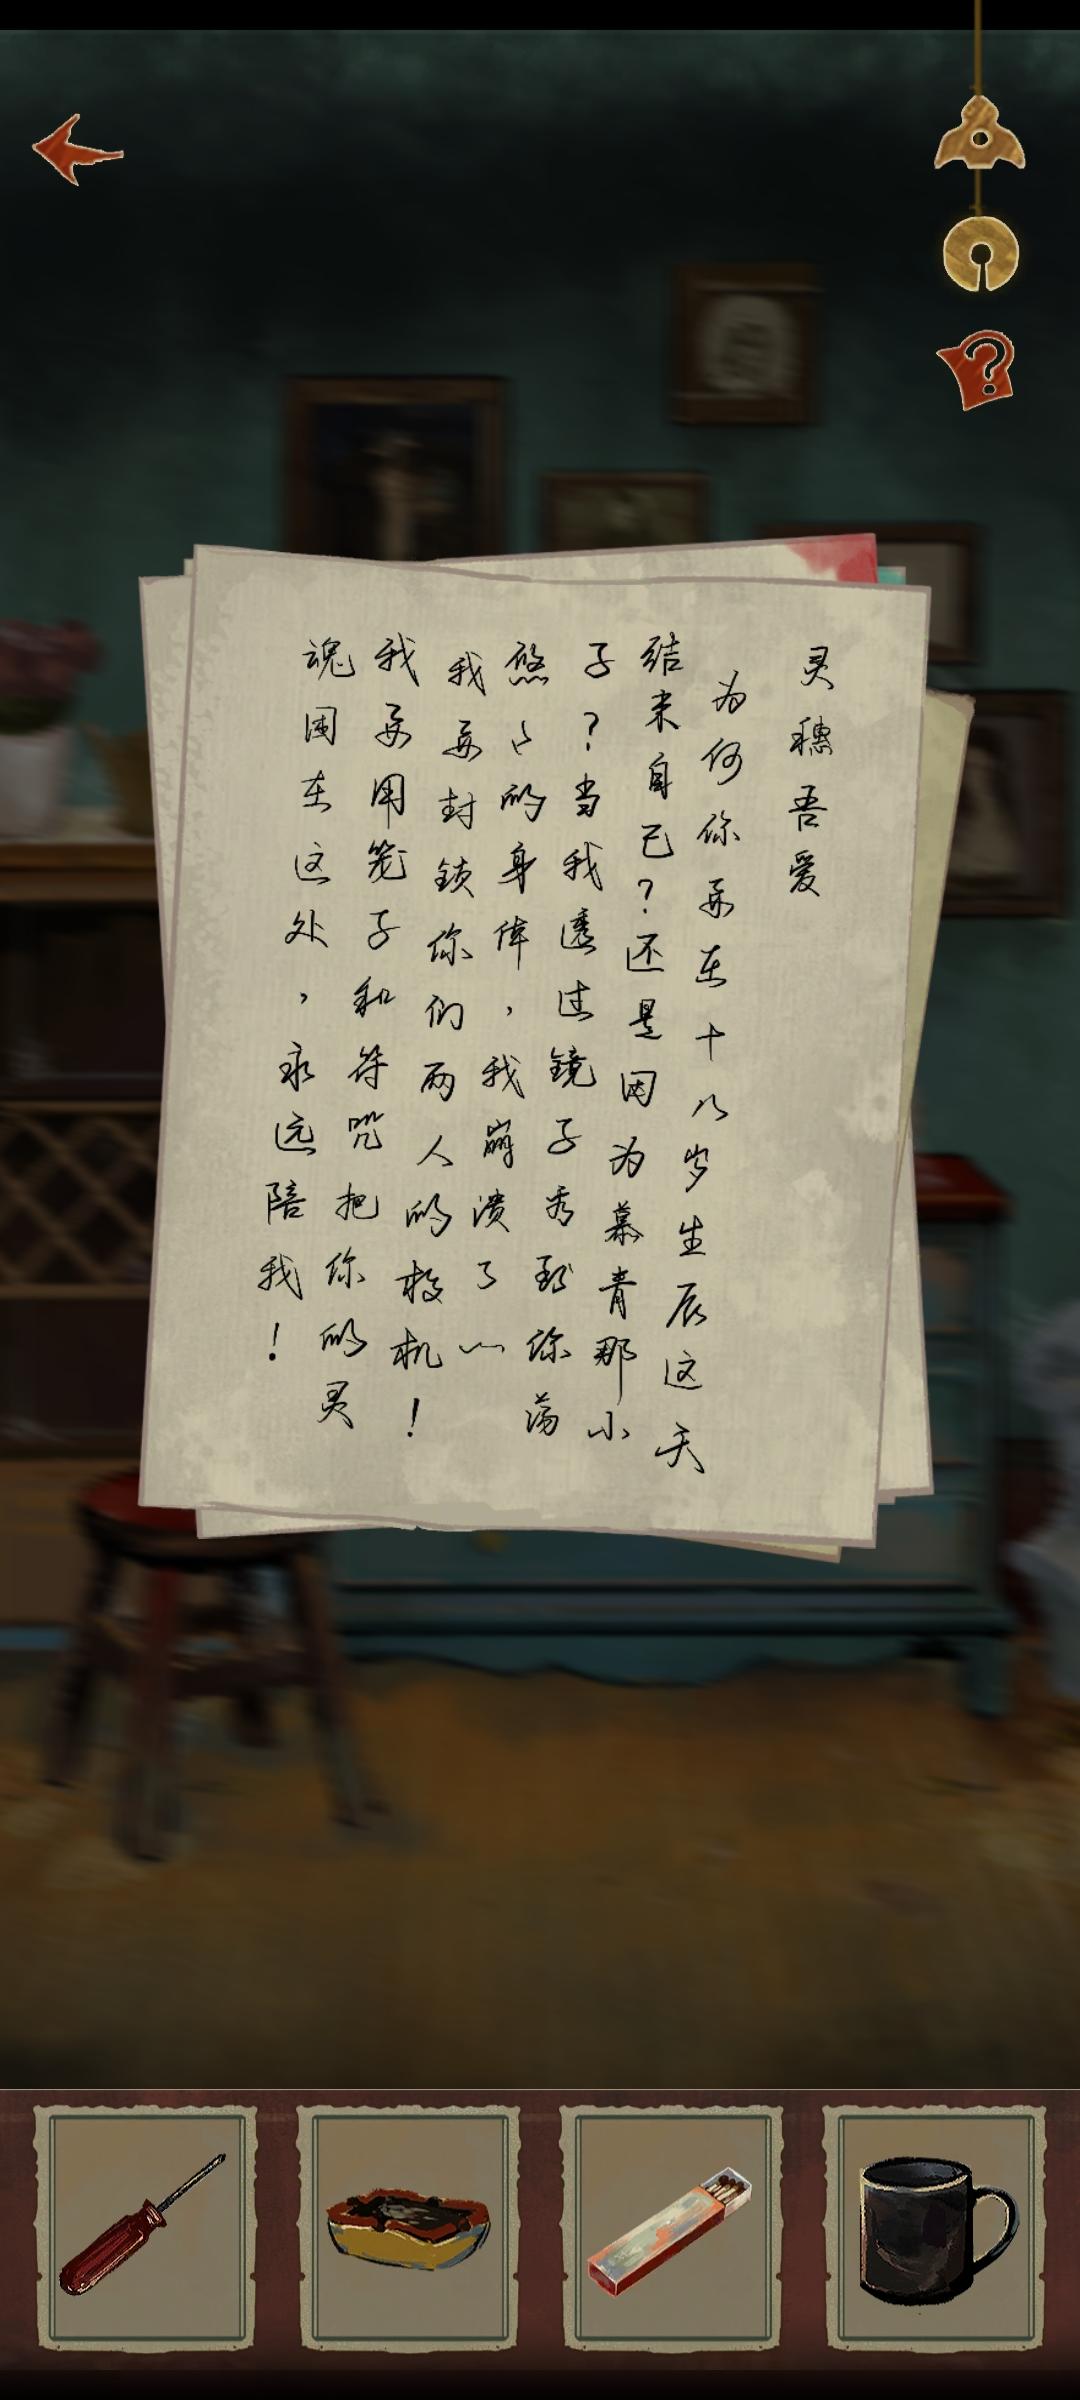 灵穗吾爱
为何你要在十八岁生辰这天
结束自己?还是因为慕青那小
子?当我透过镜子看到你荡
悠悠的身体,我崩溃了…
我要封锁你们两人的投机!
我要用笼子和符咒把你的灵
魂困在这处,永远陪我!
?